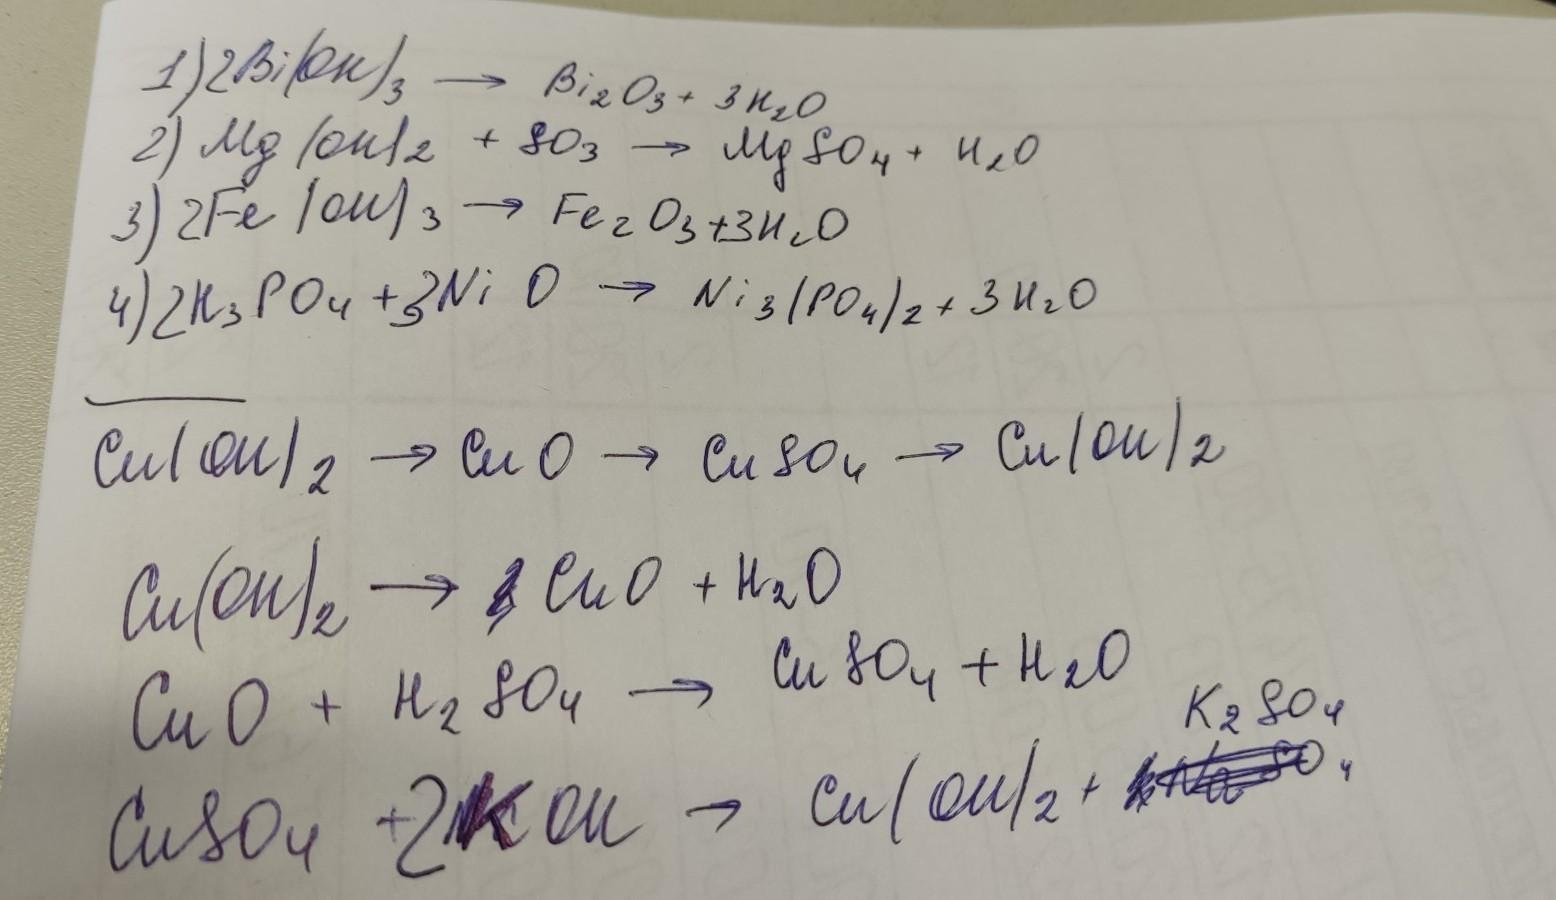 1) 2Bi(OH)3 → Bi2O3 + 3H2O
2) Mg(OH)2 + SO3 → MgSO4 + H2O
3) 2Fe(OH)3 → Fe2O3 + 3H2O
4) 2H3PO4 + 3NiO → Ni3(PO4)2 + 3H2O
Cu(OH)2 → CuO → CuSO4 → Cu(OH)2
Cu(OH)2 → CuO + H2O
CuO + H2SO4 → CuSO4 + H2O
CuSO4 + 2KOH → Cu(OH)2 + K2SO4